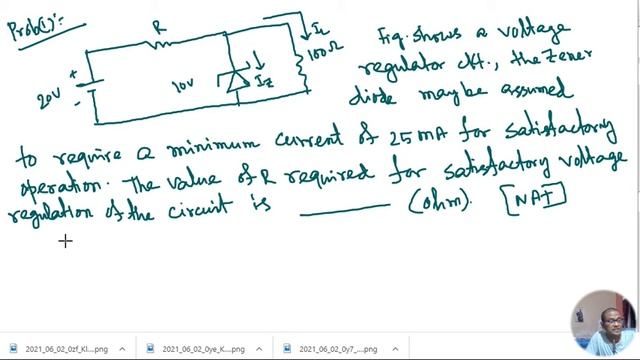 Prob(1):-
R
I_L
100Ω
20V
+
-
10V
I_Z
Fig. shows a voltage
regulator ckt., the Zener
diode may be assumed
to require a minimum current of 25 mA for satisfactory
operation. The value of R required for satisfactory voltage
regulation of the circuit is ________ (ohm). [NAT]
2021_06_02_0zf_Kl....png
2021_06_02_0ye_K....png
2021_06_02_0y7_....png